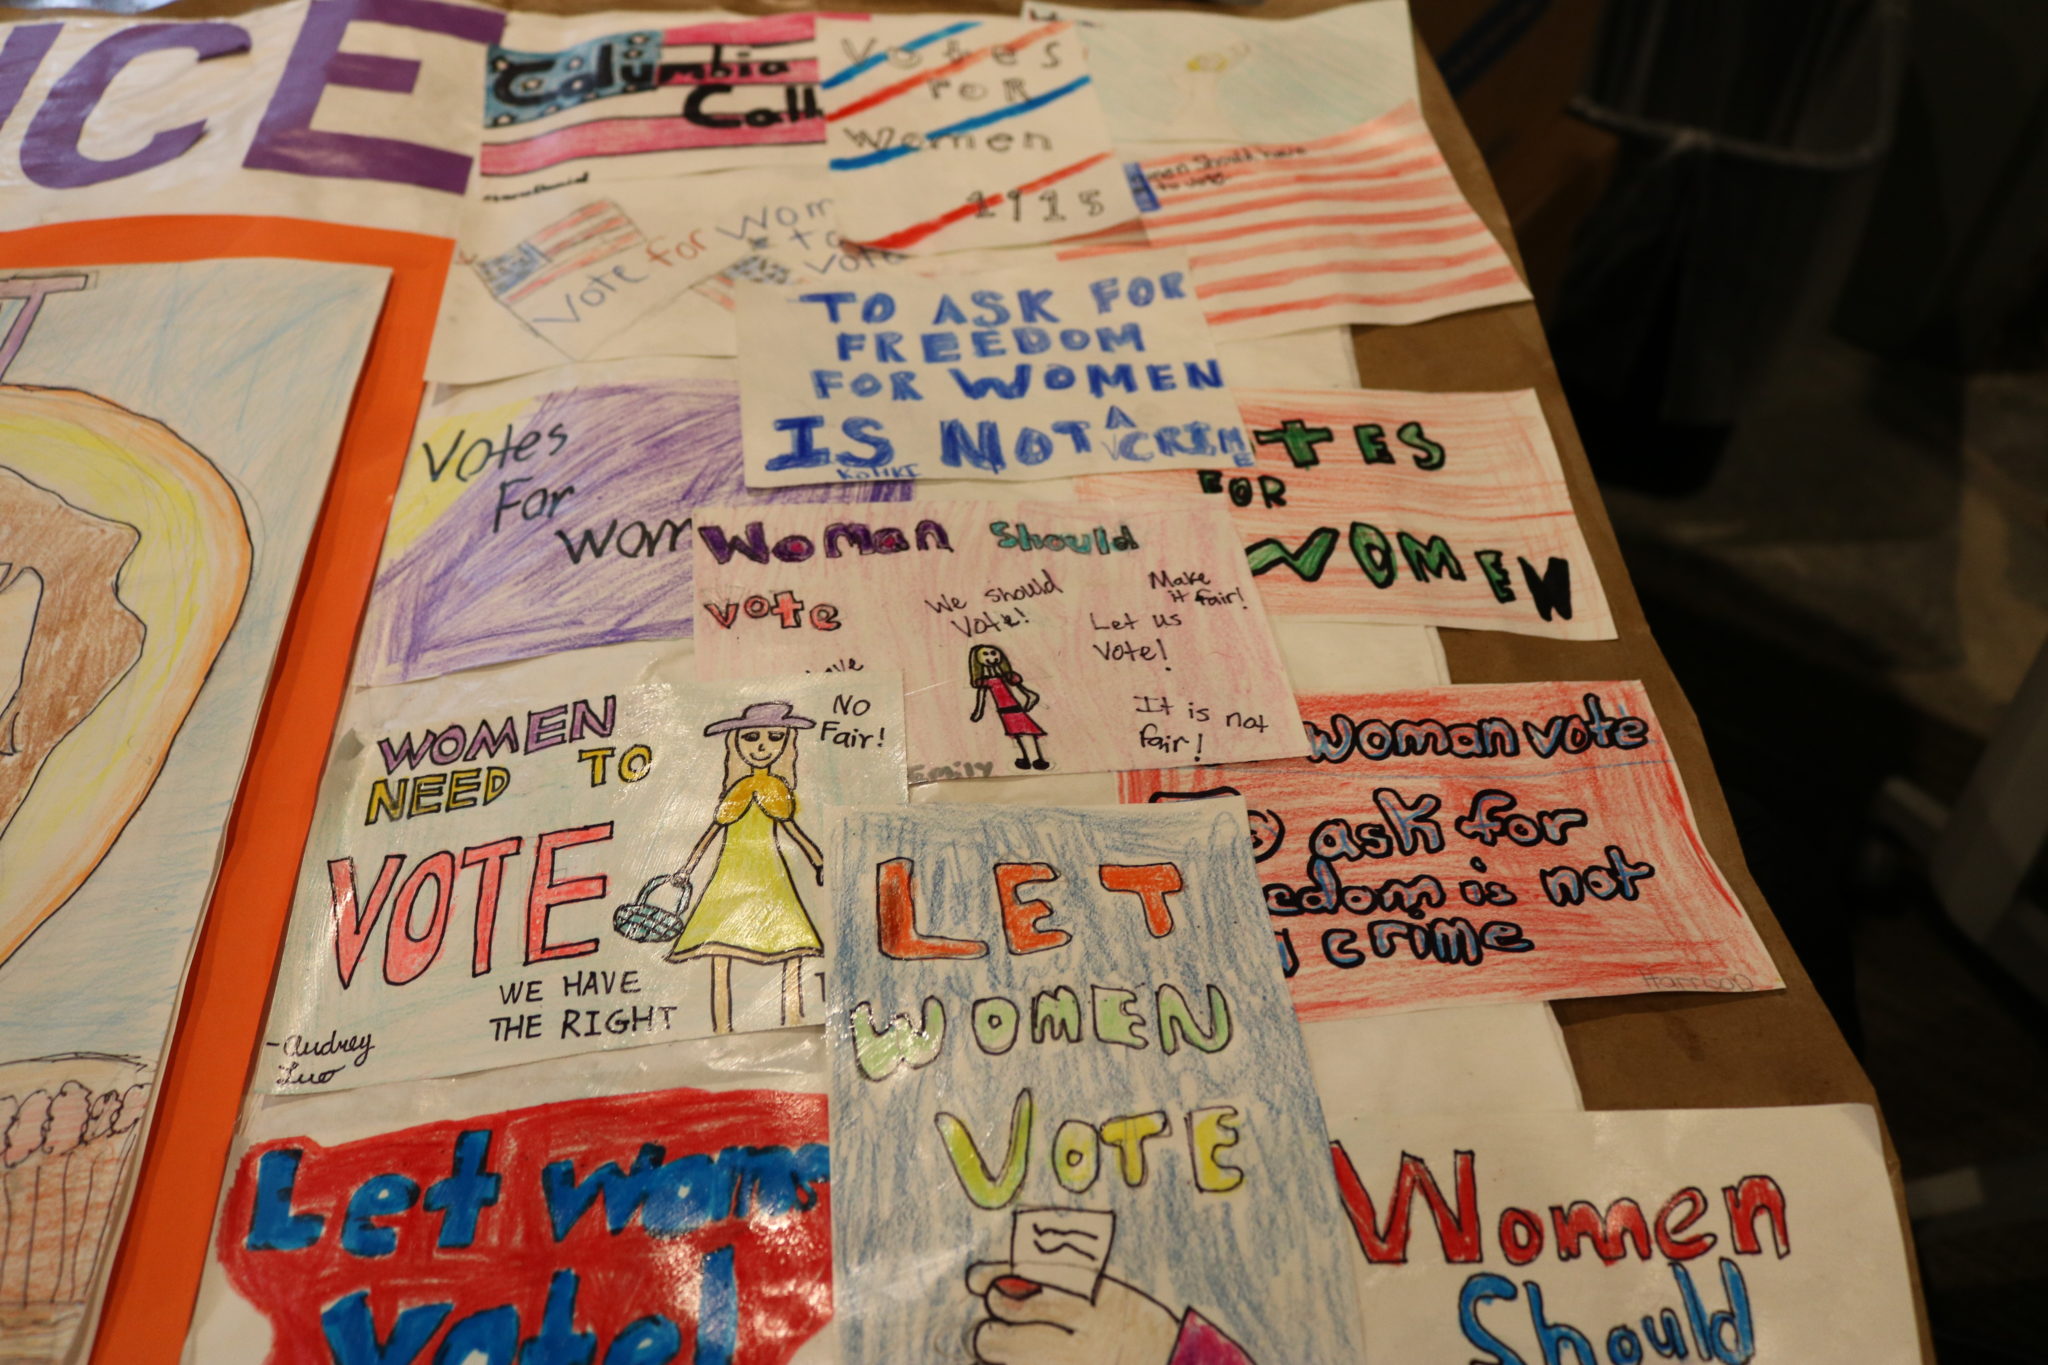 ICE
Columbia
Calls
Votes
FOR
Women
1915
Should have
to vote
Vote for
to
vote
TO ASK FOR
FREEDOM
FOR WOMEN
IS NOT A CRIME
Votes
For
TES
FOR
WOMEN
Woman Should
vote
We should
Vote!
Make
it fair!
Let us
Vote!
It is not
fair!
Emily
WOMEN
NEED TO
VOTE
WE HAVE
THE RIGHT
No
Fair!
-Audrey
Luo
woman vote
ask for
edom is not
crime
Harrison
LET
WOMEN
VOTE
Let
Vote!
Women
Should